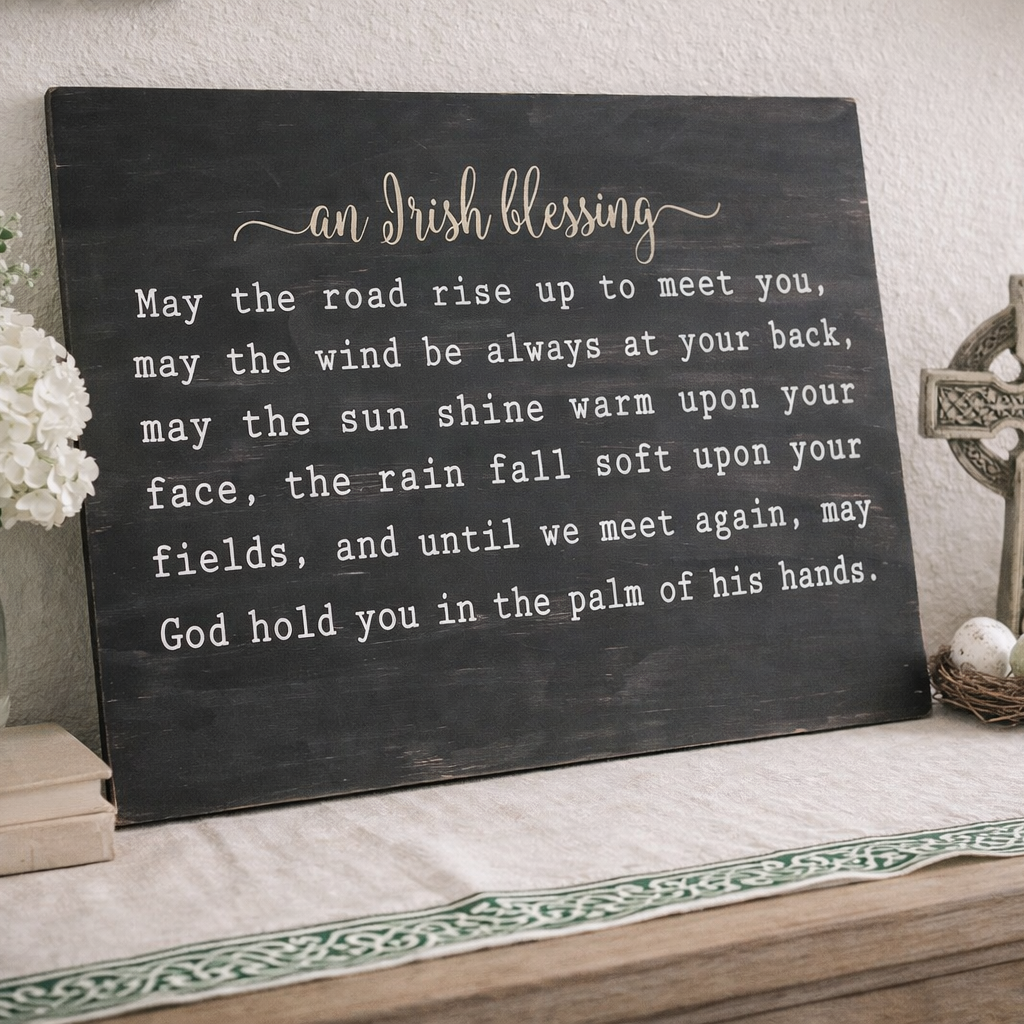 an Irish blessing
May the road rise up to meet you,
may the wind be always at your back,
may the sun shine warm upon your
face, the rain fall soft upon your
fields, and until we meet again, may
God hold you in the palm of his hands.